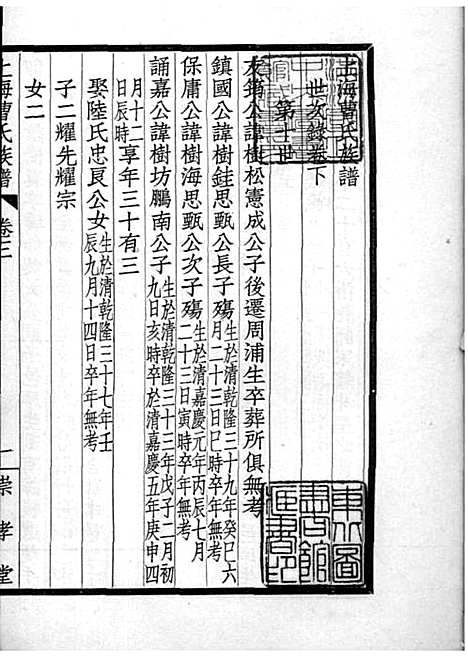 上海曹氏族譜
世次錄卷下
第十一世
友鋗公諱樹松憲成公子後遷周浦生卒葬所俱無考
鎮國公諱樹銈思甄公長子殤生於清乾隆三十九年癸巳六月二十三日巳時卒年無考
保庸公諱樹海思甄公次子殤生於清嘉慶元年丙辰七月二十三日寅時卒年無考
誦嘉公諱樹坊鵬南公子生於清乾隆三十三年戊子二月初九日亥時卒於清嘉慶五年庚申四
月十二日辰時享年三十有三
娶陸氏忠良公女生於清乾隆三十七年壬辰九月十四日卒年無考
子二耀先耀宗
女二
上海曹氏族譜
卷三
一
崇孝堂